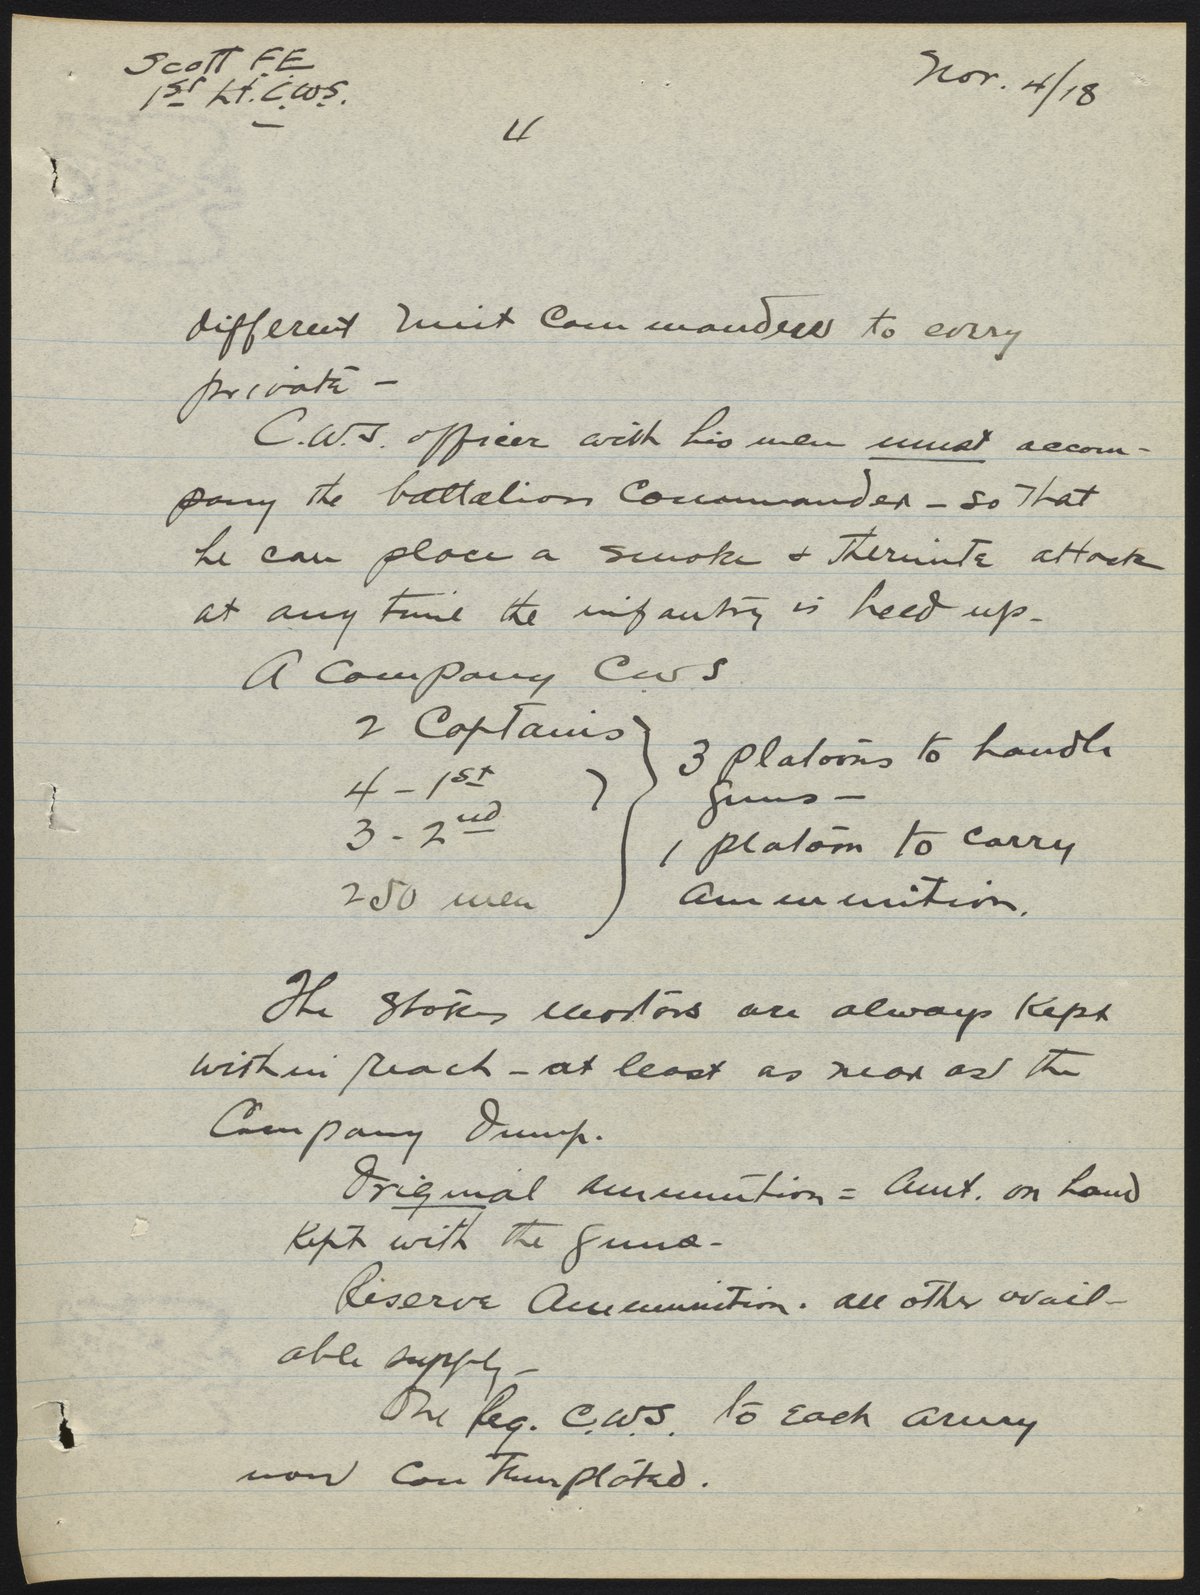 Scott F.E
1st Lt. C.W.S.
Nov. 4/18
4
different unit Commanders to every
private -
C.W.S. officer with his men must accom-
pany the battalion Commander - so that
he can place a smoke + thermite attack
at any time the infantry is heed up -
A Company C W S
2 Captains
4 - 1st
3 - 2nd
250 men
3 platoons to handle
guns -
1 platoon to carry
ammunition.
The Stokes mortars are always kept
within reach - at least as near as the
Company Dump.
Original ammunition = Amt. on hand
kept with the guns -
Reserve Ammunition. all other avail-
able supply -
One Reg. C.W.S. to each army
now contemplated.